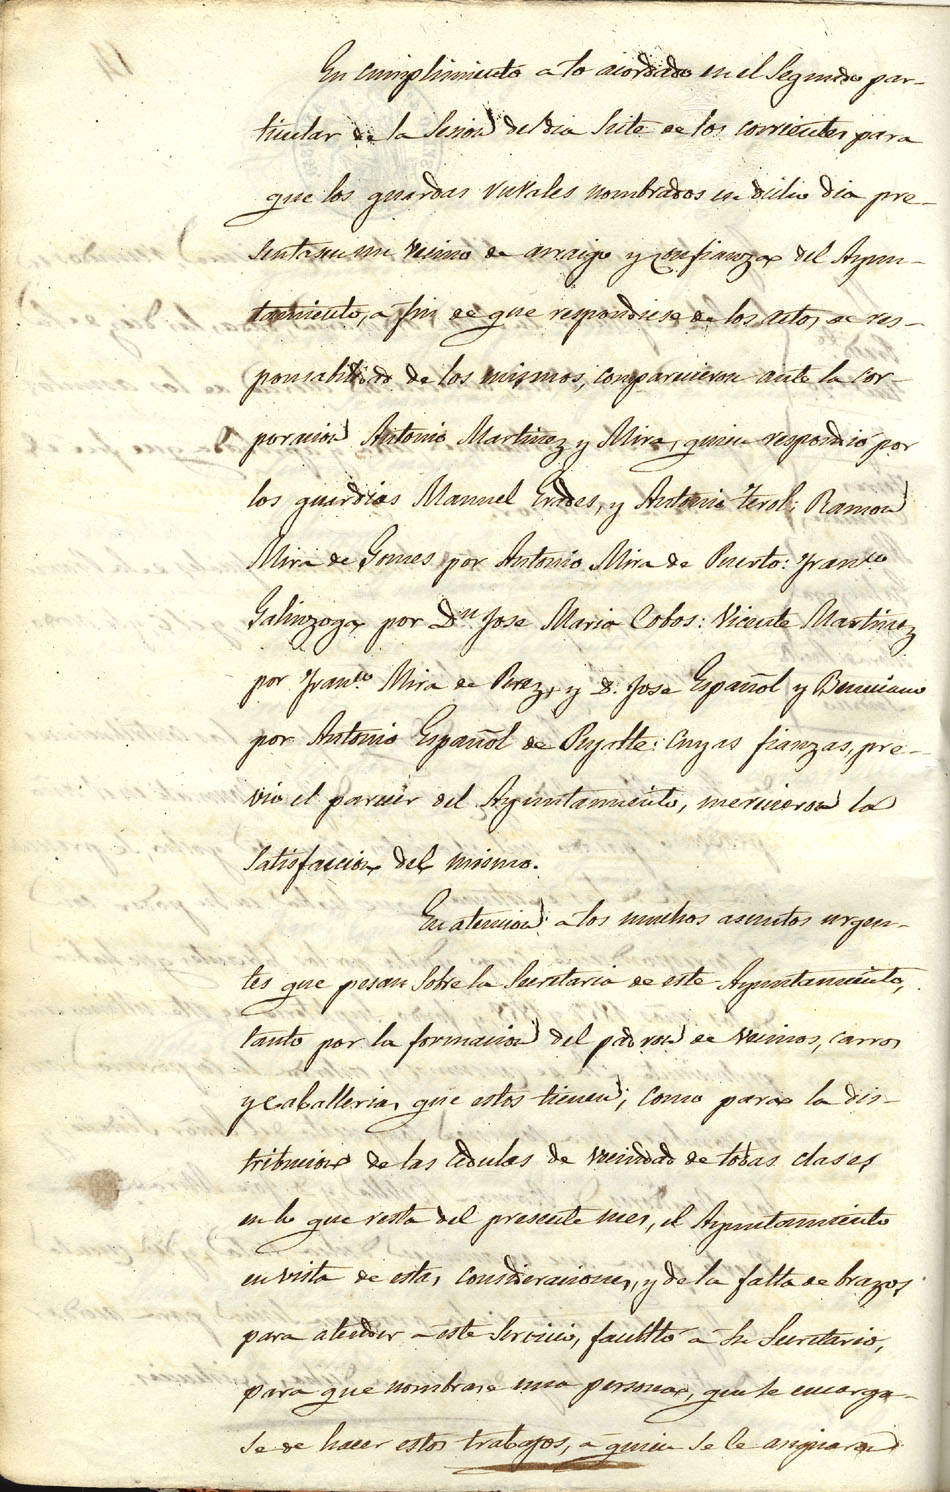 En cumplimiento a lo acordado en el Segundo par-
ticular de la Sesion del dia Siete de los corrientes para
que los guardas rurales nombrados en dicho dia pre-
sentasen un vecino de arraigo y confianza del Ayun-
tamiento, a fin de que respondiese de los actos de res-
ponsabilidad de los mismos, comparecieron ante la cor-
poracion Antonio Martinez y Mira, quien respondió por
los guardias Manuel Erades, y Antonio Terol; Ramon
Mira de Gomes por Antonio Mira de Puerto: Fran.co
Galinzoga por D.n Jose Maria Cobos: Vicente Martinez
por Fran.co Mira de Perez, y D. Jose Español y Beneciano
por Antonio Español de Puyalte: cuyas fianzas, pre-
vio el parecer del Ayuntamiento, merecieron la
satisfaccion del mismo.
En atencion a los muchos asuntos urgen-
tes que pesan Sobre la Secretaria de este Ayuntamiento,
tanto por la formacion del padron de vecinos, carros
y caballerias que estos tienen; como para la dis-
tribucion de las cedulas de vecindad de todas clases
en lo que resta del presente mes, el Ayuntamiento
en vista de estas consideraciones, y de la falta de brazos
para atender a este servicio, facultó a Su Secretario,
para que nombrase una persona, que se encarga-
se de hacer estos trabajos, a quien se le asignaran